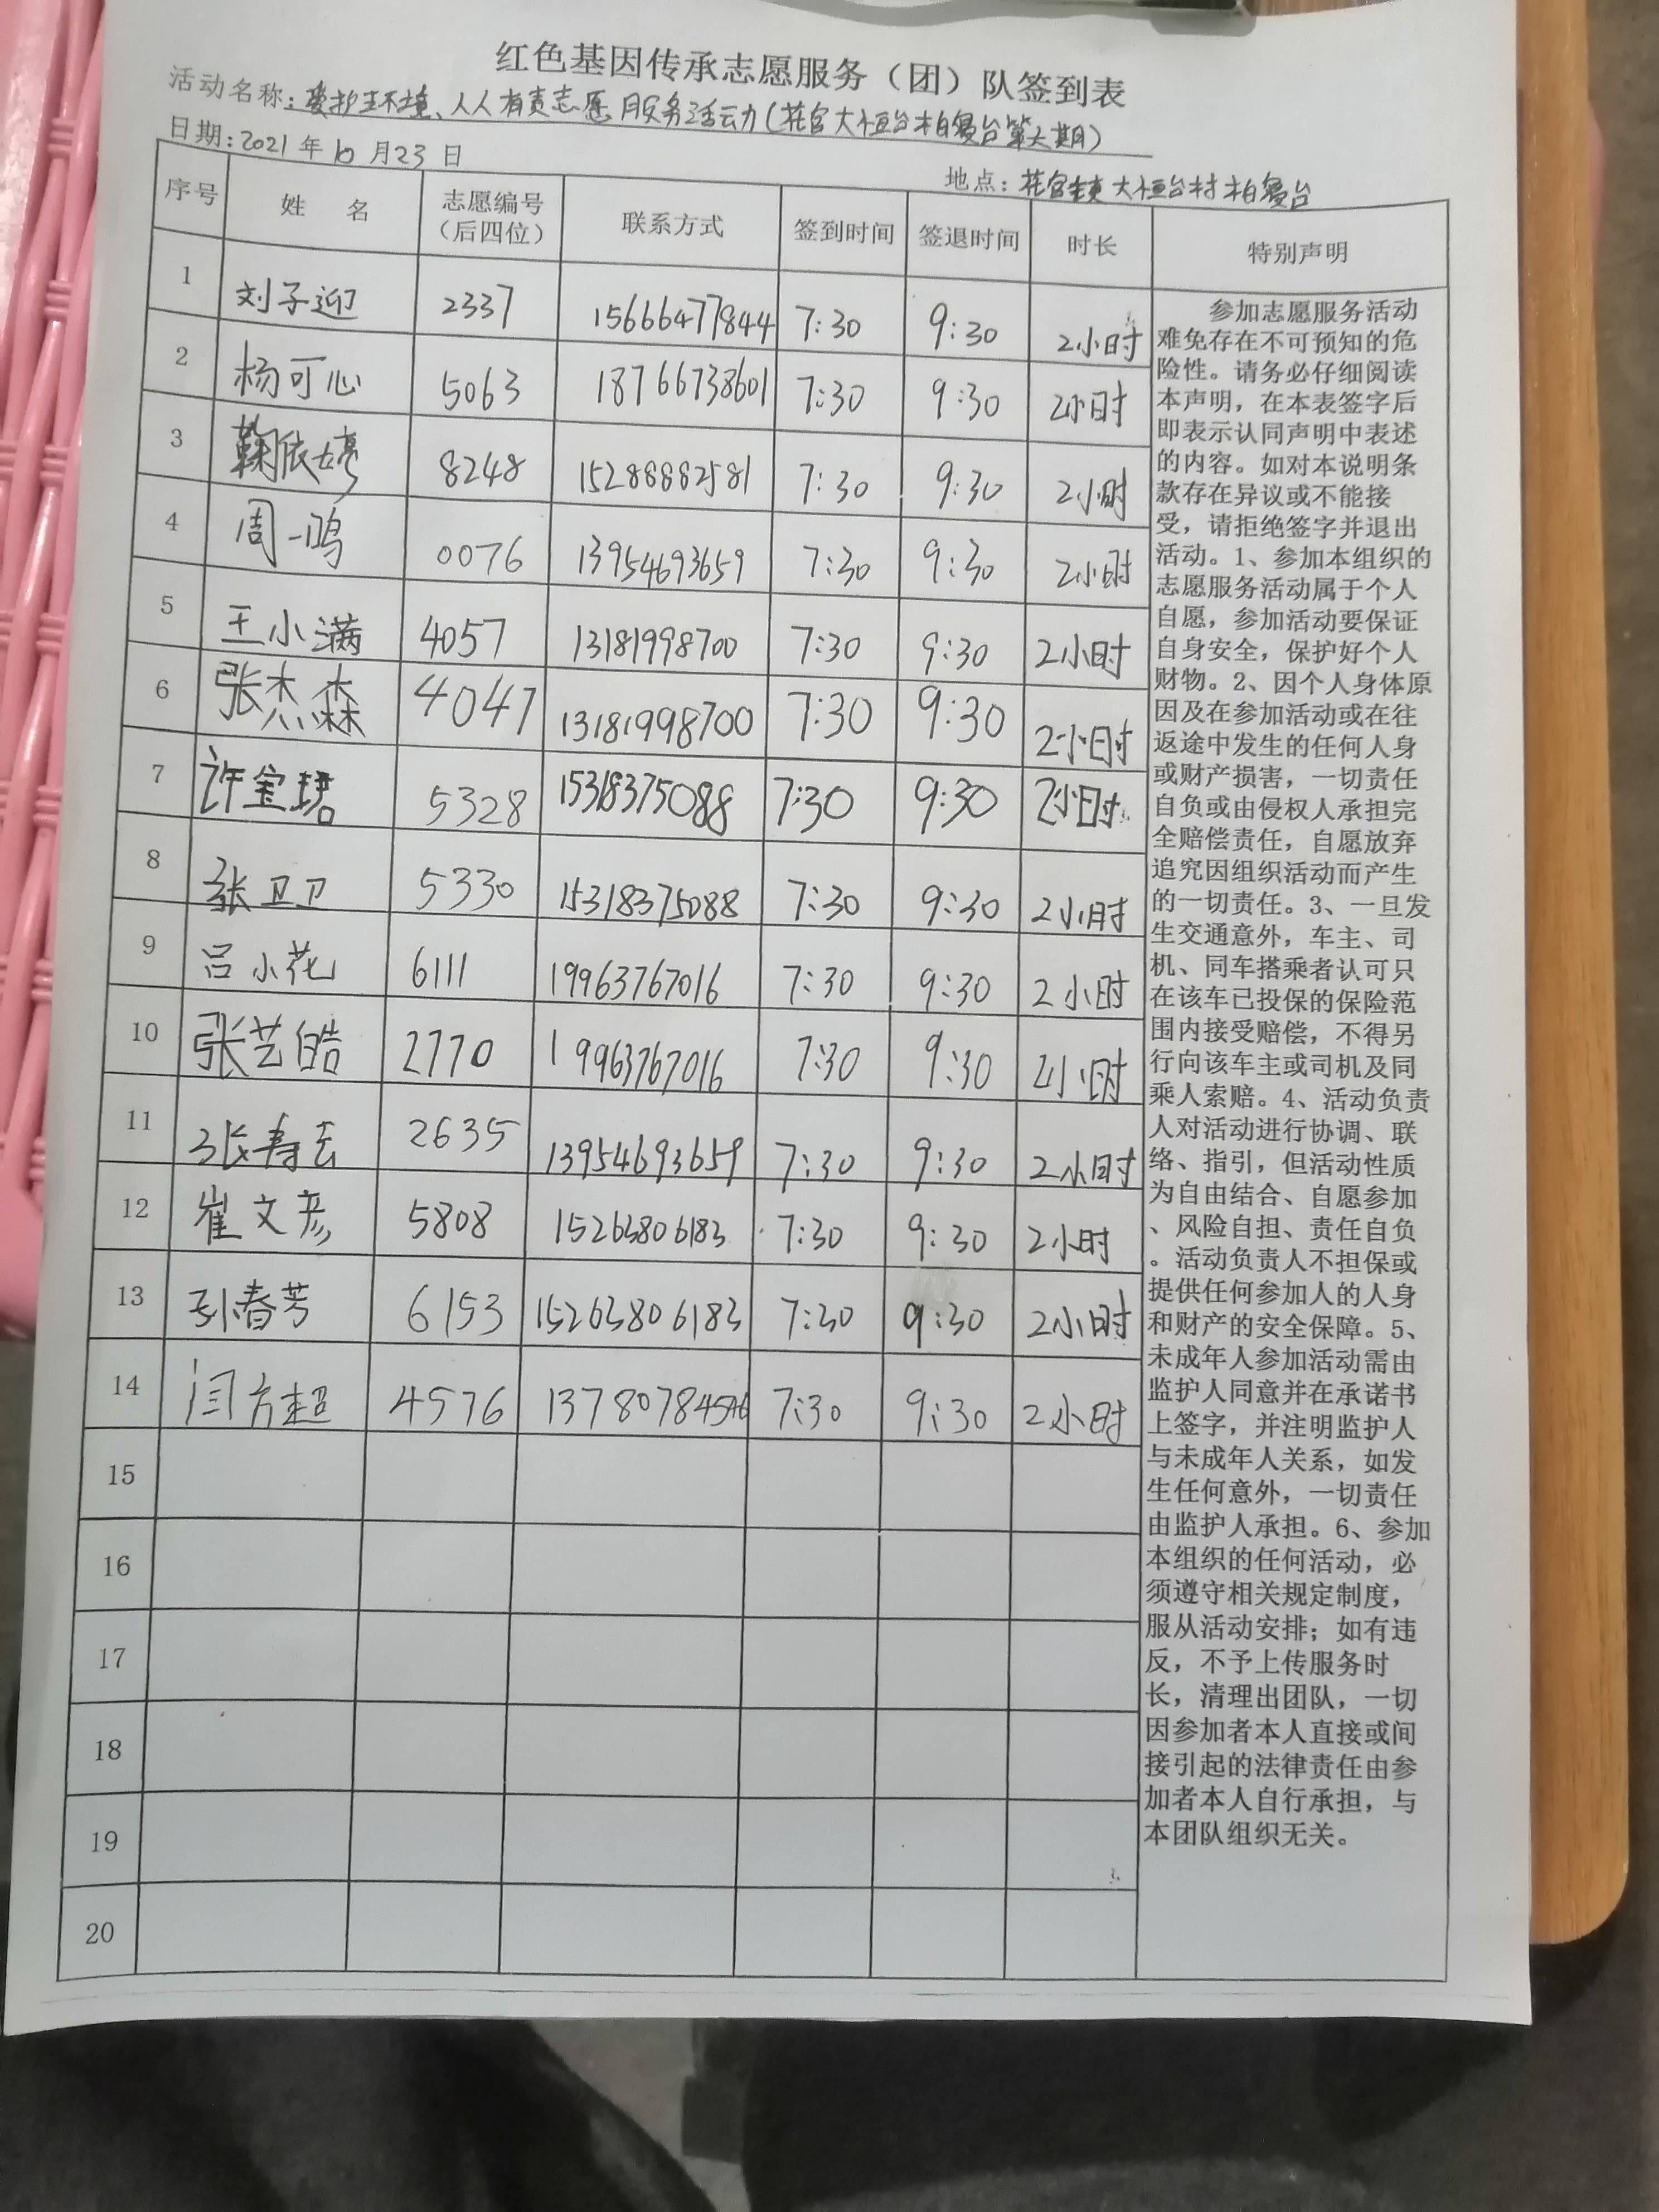 红色基因传承志愿服务（团）队签到表
活动名称：爱护环境、人人有责志愿服务活动（花官大桓台柏寝台第六期）
日期：2021年10月23日
地点：花官镇大桓台村柏寝台
序号 姓 名 志愿编号（后四位） 联系方式 签到时间 签退时间 时长 特别声明
1 刘子迎 2337 15666477844 7:30 9:30 2小时
2 杨可心 5063 18766738601 7:30 9:30 2小时
3 鞠依婷 8248 15288882581 7:30 9:30 2小时
4 周一鸣 0076 13954693659 7:30 9:30 2小时
5 王小满 4057 13181998700 7:30 9:30 2小时
6 张杰森 4047 13181998700 7:30 9:30 2小时
7 许宝珺 5328 15318375088 7:30 9:30 2小时
8 张卫卫 5330 15318375088 7:30 9:30 2小时
9 吕小花 6111 19963767016 7:30 9:30 2小时
10 张艺皓 2770 19963767016 7:30 9:30 2小时
11 张寿云 2635 13954693659 7:30 9:30 2小时
12 崔文彦 5808 15263806183 7:30 9:30 2小时
13 孙春芳 6153 15263806183 7:30 9:30 2小时
14 闫方超 4576 13780784576 7:30 9:30 2小时
15
16
17
18
19
20
参加志愿服务活动
难免存在不可预知的危
险性。请务必仔细阅读
本声明，在本表签字后
即表示认同声明中表述
的内容。如对本说明条
款存在异议或不能接
受，请拒绝签字并退出
活动。1、参加本组织的
志愿服务活动属于个人
自愿，参加活动要保证
自身安全，保护好个人
财物。2、因个人身体原
因及在参加活动或在往
返途中发生的任何人身
或财产损害，一切责任
自负或由侵权人承担完
全赔偿责任，自愿放弃
追究因组织活动而产生
的一切责任。3、一旦发
生交通意外，车主、司
机、同车搭乘者认可只
在该车已投保的保险范
围内接受赔偿，不得另
行向该车主或司机及同
乘人索赔。4、活动负责
人对活动进行协调、联
络、指引，但活动性质
为自由结合、自愿参加
、风险自担、责任自负
。活动负责人不担保或
提供任何参加人的人身
和财产的安全保障。5、
未成年人参加活动需由
监护人同意并在承诺书
上签字，并注明监护人
与未成年人关系，如发
生任何意外，一切责任
由监护人承担。6、参加
本组织的任何活动，必
须遵守相关规定制度，
服从活动安排；如有违
反，不予上传服务时
长，清理出团队，一切
因参加者本人直接或间
接引起的法律责任由参
加者本人自行承担，与
本团队组织无关。